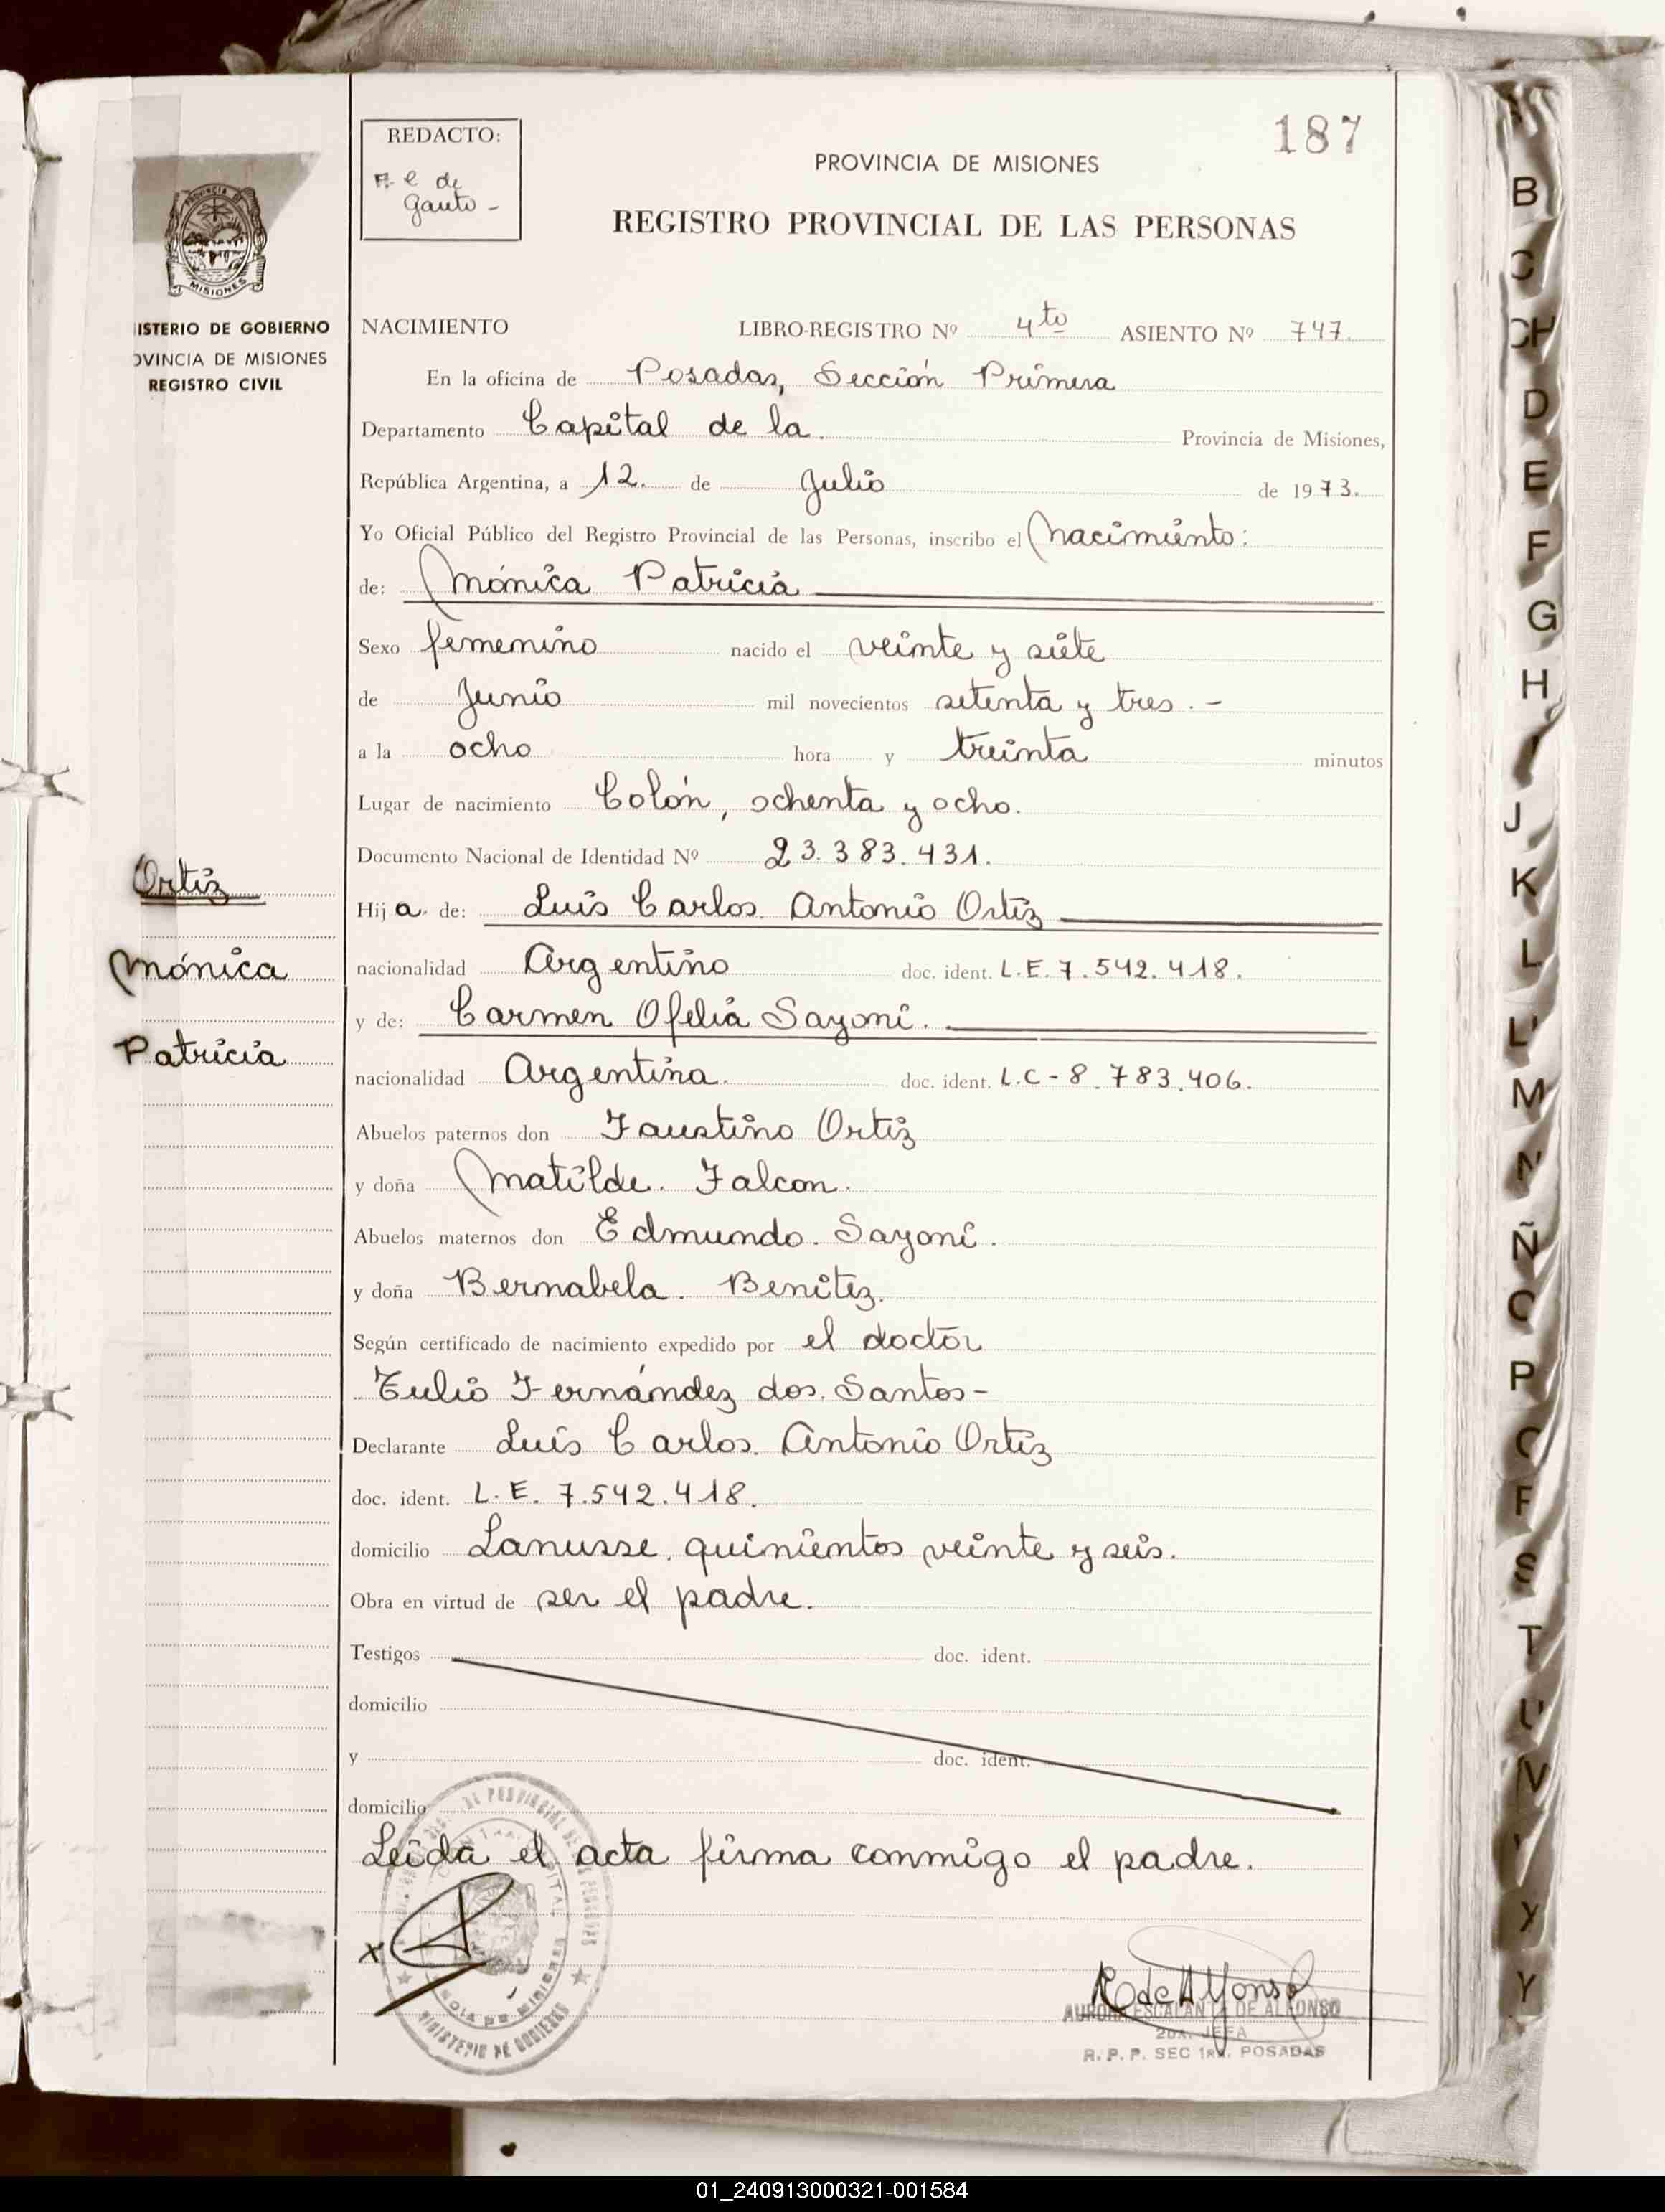 187
REDACTO:
F. E de
Gauto -
PROVINCIA DE MISIONES
REGISTRO PROVINCIAL DE LAS PERSONAS
MISIONES
ISTERIO DE GOBIERNO
OVINCIA DE MISIONES
REGISTRO CIVIL
NACIMIENTO LIBRO-REGISTRO Nº 4to ASIENTO Nº 747.
En la oficina de Posadas, Sección Primera
Departamento Capital de la. Provincia de Misiones,
República Argentina, a 12. de Julio de 1973.
Yo Oficial Público del Registro Provincial de las Personas, inscribo el nacimiento:
de: Mónica Patricia
Sexo femenino nacido el veinte y siete
de Junio mil novecientos setenta y tres. -
a la ocho hora y treinta minutos
Lugar de nacimiento Colón, ochenta y ocho.
Documento Nacional de Identidad Nº 23.383.431.
Ortiz
Hija. de: Luis Carlos Antonio Ortiz
Mónica
nacionalidad Argentino doc. ident. L.E. 7.542.418.
y de: Carmen Ofelia Sayoni.
Patricia
nacionalidad Argentina. doc. ident. L.C - 8.783.406.
Abuelos paternos don Faustino Ortiz
y doña Matilde. Falcon.
Abuelos maternos don Edmundo. Sayoni.
y doña Bernabela. Benitez.
Según certificado de nacimiento expedido por el doctor
Tulio Fernández dos. Santos -
Declarante Luis Carlos. Antonio Ortiz
doc. ident. L.E. 7.542.418.
domicilio Lanusse. quinientos veinte y seis.
Obra en virtud de ser el padre.
Testigos doc. ident.
domicilio
y doc. ident.
domicilio
Leida el acta firma conmigo el padre.
x
MINISTERIO DE GOBIERNO
R de Alfonso
AURORA ESCALANTE DE ALFONSO
2DA. JEFA
R. P. P. SEC 1RA. POSADAS
B
C
CH
D
E
F
G
H
I
J
K
L
LL
M
N
Ñ
O
P
Q
S
T
U
V
X
Y
01_240913000321-001584